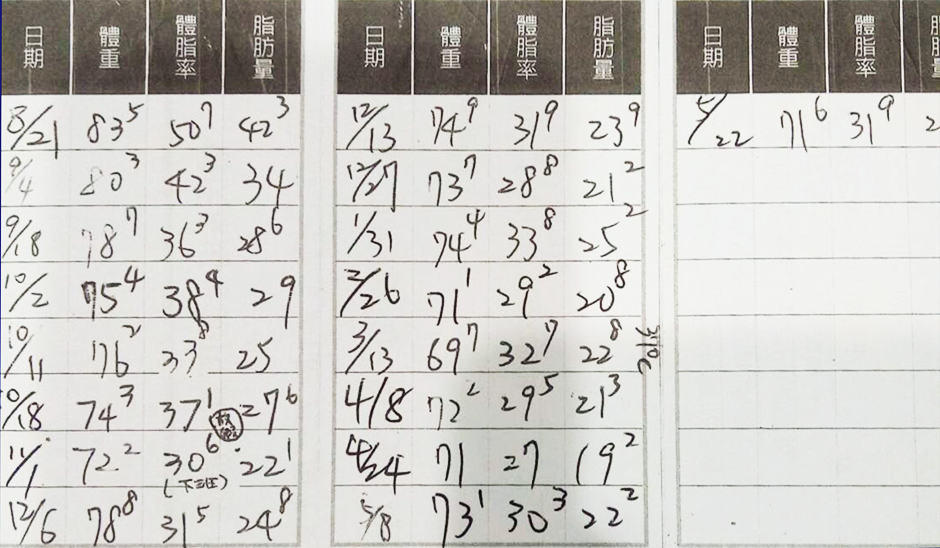 日期 體重 體脂率 脂肪量
8/21 83⁵ 50⁷ 42³
9/4 80³ 42³ 34
9/18 78⁷ 36³ 28⁶
10/2 75⁴ 38⁴ 29
10/11 76² 33⁸ 25
10/18 74³ 37¹ 27⁶
11/1 72² 30⁶ 22¹
(下班)
12/6 78⁸ 31⁵ 24⁸
日期 體重 體脂率 脂肪量
12/13 74⁹ 31⁹ 23⁹
12/27 73⁷ 28⁸ 21²
1/31 74⁴ 33⁸ 25²
2/26 71¹ 29² 20⁸
3/13 69⁷ 32⁷ 22⁸
4/8 72² 29⁵ 21³
4/24 71 27 19²
5/8 73¹ 30³ 22²
日期 體重 體脂率
5/22 71⁶ 31⁹